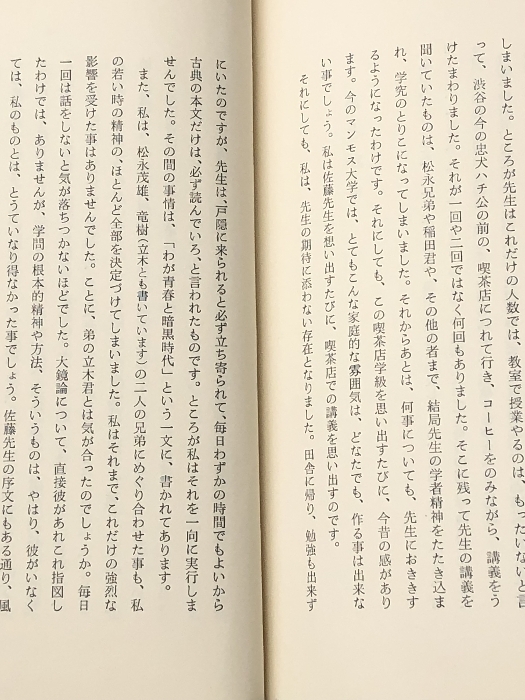 しまいました。ところが先生はこれだけの人数では、教室で授業やるのは、もったいないと言
って、渋谷の今の忠犬ハチ公の前の、喫茶店につれて行き、コーヒーをのみながら、講義をう
けたまわりました。それが一回や二回ではなく何回もありました。そこに残って先生の講義を
聞いていたものは、松永兄弟や稲田君や、その他の者まで、結局先生の学者精神をたたき込ま
れ、学究のとりこになってしまいました。それからあとは、何事についても、先生におききす
るようになったわけです。それにしても、この喫茶店学級を思い出すたびに、今昔の感があり
ます。今のマンモス大学では、とてもこんな家庭的な雰囲気は、どなたでも、作る事は出来な
い事でしょう。私は佐藤先生を想い出すたびに、喫茶店での講義を思い出すのです。
それにしても、私は、先生の期待に添わない存在となりました。田舎に帰り、勉強も出来ず
にいたのですが、先生は、戸隠に来られると必ず立ち寄られて、毎日わずかの時間でもよいから
古典の本文だけは、必ず読んでいろ、と言われたものです。ところが私はそれを一向に実行しま
せんでした。その間の事情は、「わが青春と暗黒時代」という一文に、書かれてあります。
また、私は、松永茂雄、竜樹（立木とも書いています）の二人の兄弟にめぐり合わせた事も、私
の若い時の精神の、ほとんど全部を決定づけてしまいました。私はそれまで、これだけの強烈な
影響を受けた事はありませんでした。ことに、弟の立木君とは気が合ったのでしょうか。毎日
一回は話をしないと気が落ちつかないほどでした。大鏡論について、直接彼があれこれ指図し
たわけでは、ありませんが、学問の根本的精神や方法、そういうものは、やはり、彼がいなく
ては、私のものとは、とうていなり得なかった事でしょう。佐藤先生の序文にもある通り、風